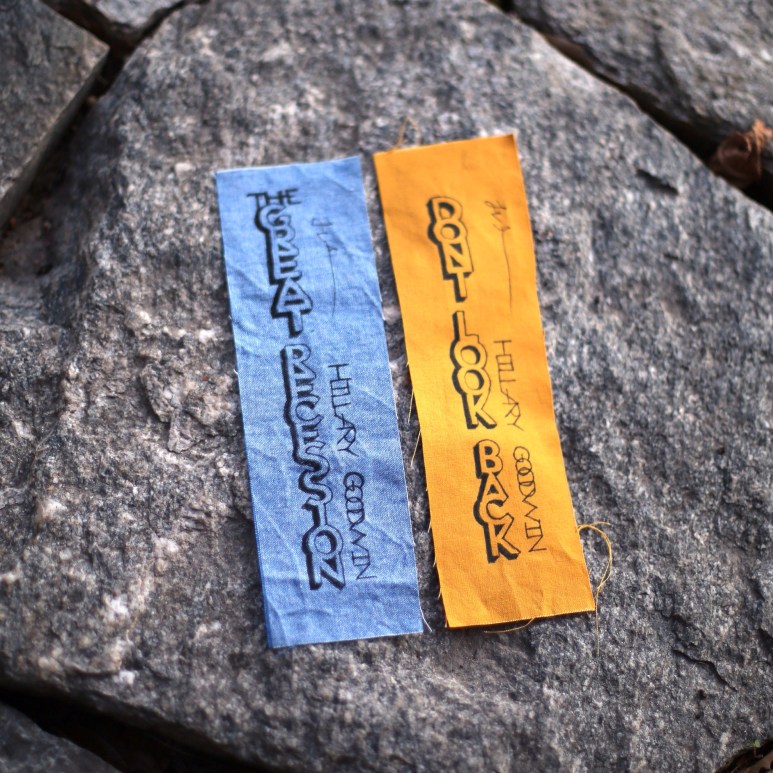 THE GREAT RECESSION
HILLARY GOODWIN
DON'T LOOK BACK
HILLARY GOODWIN